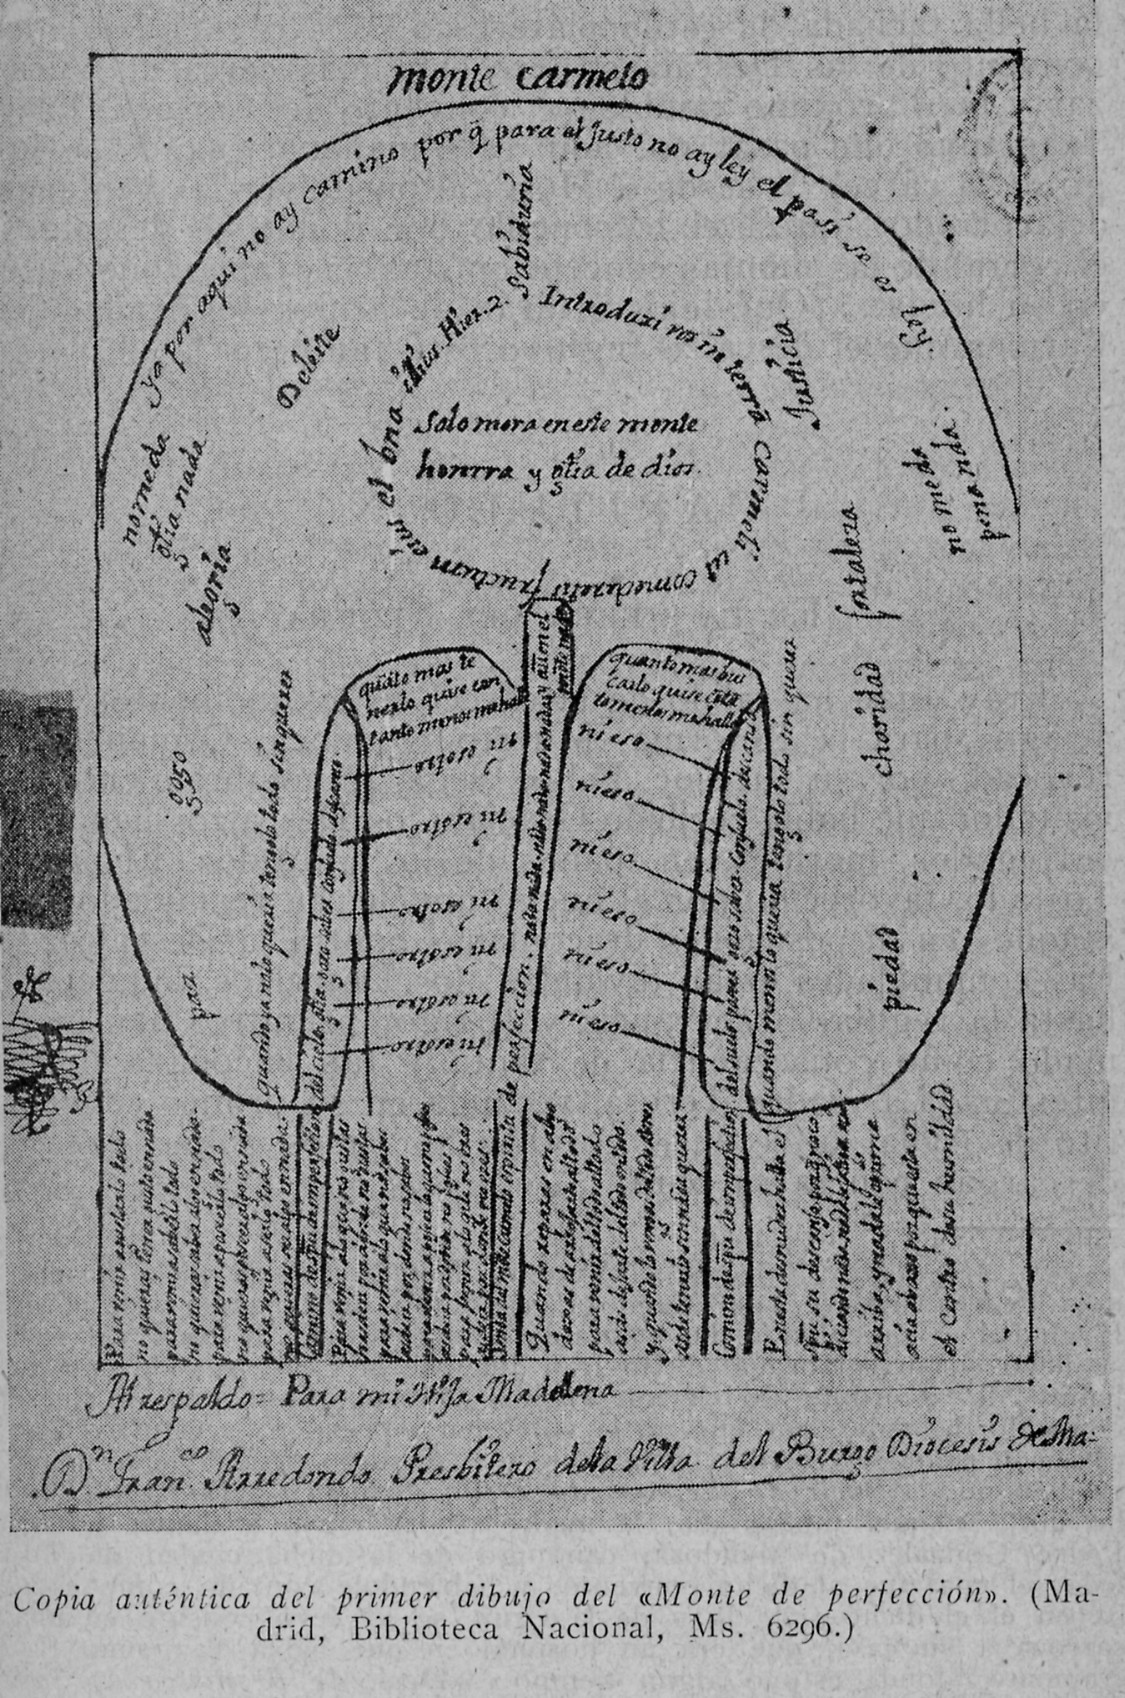 monte carmelo
ya por aqui no ay camino por q̃ para el Justo no ay ley el para si se es ley.
Sabiduria
Deleite
Justicia
Introduxi vos in terra carmeli ut comederetis fructum eius et bna illius. Hier. 2.
Solo mora en este monte
honrra y gl̃ia de dios.
no me da
gl̃ia nada
no me da
pena nada.
alegria
fortaleza
charidad
gogo
paz
piedad
quãto mas te
nerlo quise con
tanto menos me halle
quanto mas bus
carlo quise
tanto menos me halle
nada nada nada nada nada y aũ en el
monte nada
quando ya no lo queria tengolo todo sin querer
quando menos lo queria tengolo todo sin querer
del cielo gl̃ia gozo saber consuelo descanso
del suelo poseer gozo saber consuelo descanso
ni esotro
ni esotro
ni esotro
ni esotro
ni esotro
ni esotro
ni eso
ni eso
ni eso
ni eso
ni eso
ni eso
Para venir a gustarlo todo
no quieras tener gusto en nada
para venir a saberlo todo
no quieras saber algo en nada
para venir a poseerlo todo
no quieras poseer algo en nada
para venir a serlo todo
no quieras ser algo en nada
Camino de espũ de imperfeccion
Para venir a lo que no gustas
has de ir por donde no gustas
para venir a lo que no sabes
has de ir por donde no sabes
para venir a poseer lo que no posees
has de ir por donde no posees
para venir a lo que no eres
has de ir por donde no eres
Senda del monte carmelo espiritu de perfeccion.
Quando reparas en algo
dexas de arrojarte al todo
para venir del todo al todo
has de dejarte del todo en todo.
Y quando lo vengas del todo a tener
has de tenerlo sin nada querer
Camino de espũ de imperfeccion
En esta desnudez halla el
espũ su descanso
arriba, y nada le oprime
acia abaxo porque esta en
el centro de su humildad
Al respaldo = Para mi Hija Madalena
Dn. Franco. Arredondo Presbitero de la Villa del Burgo Diocesis de Ma=
Copia auténtica del primer dibujo del «Monte de perfección». (Ma-
drid, Biblioteca Nacional, Ms. 6296.)